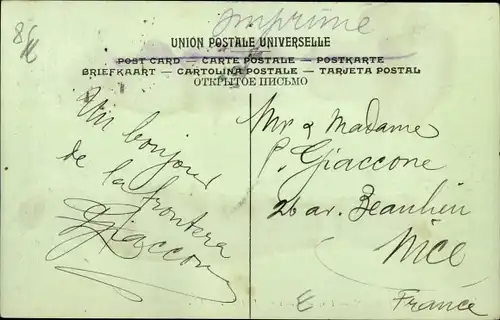 Imprimé
UNION POSTALE UNIVERSELLE
POST CARD — CARTE POSTALE — POSTKARTE
BRIEFKAART — CARTOLINA POSTALE — TARJETA POSTAL
ОТКРЫТОЕ ПИСЬМО
Un bonjour
de la frontera
Giaccone
Mr & Madame
P. Giaccone
26 av. Beaulieu
NICE
France
E